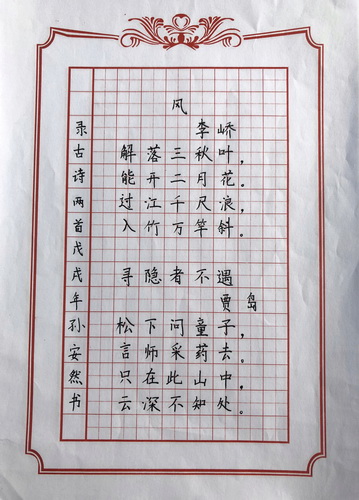 风
李峤
解落三秋叶，
能开二月花。
过江千尺浪，
入竹万竿斜。
寻隐者不遇
贾岛
松下问童子，
言师采药去。
只在此山中，
云深不知处。
录古诗两首戊戌年孙安然书